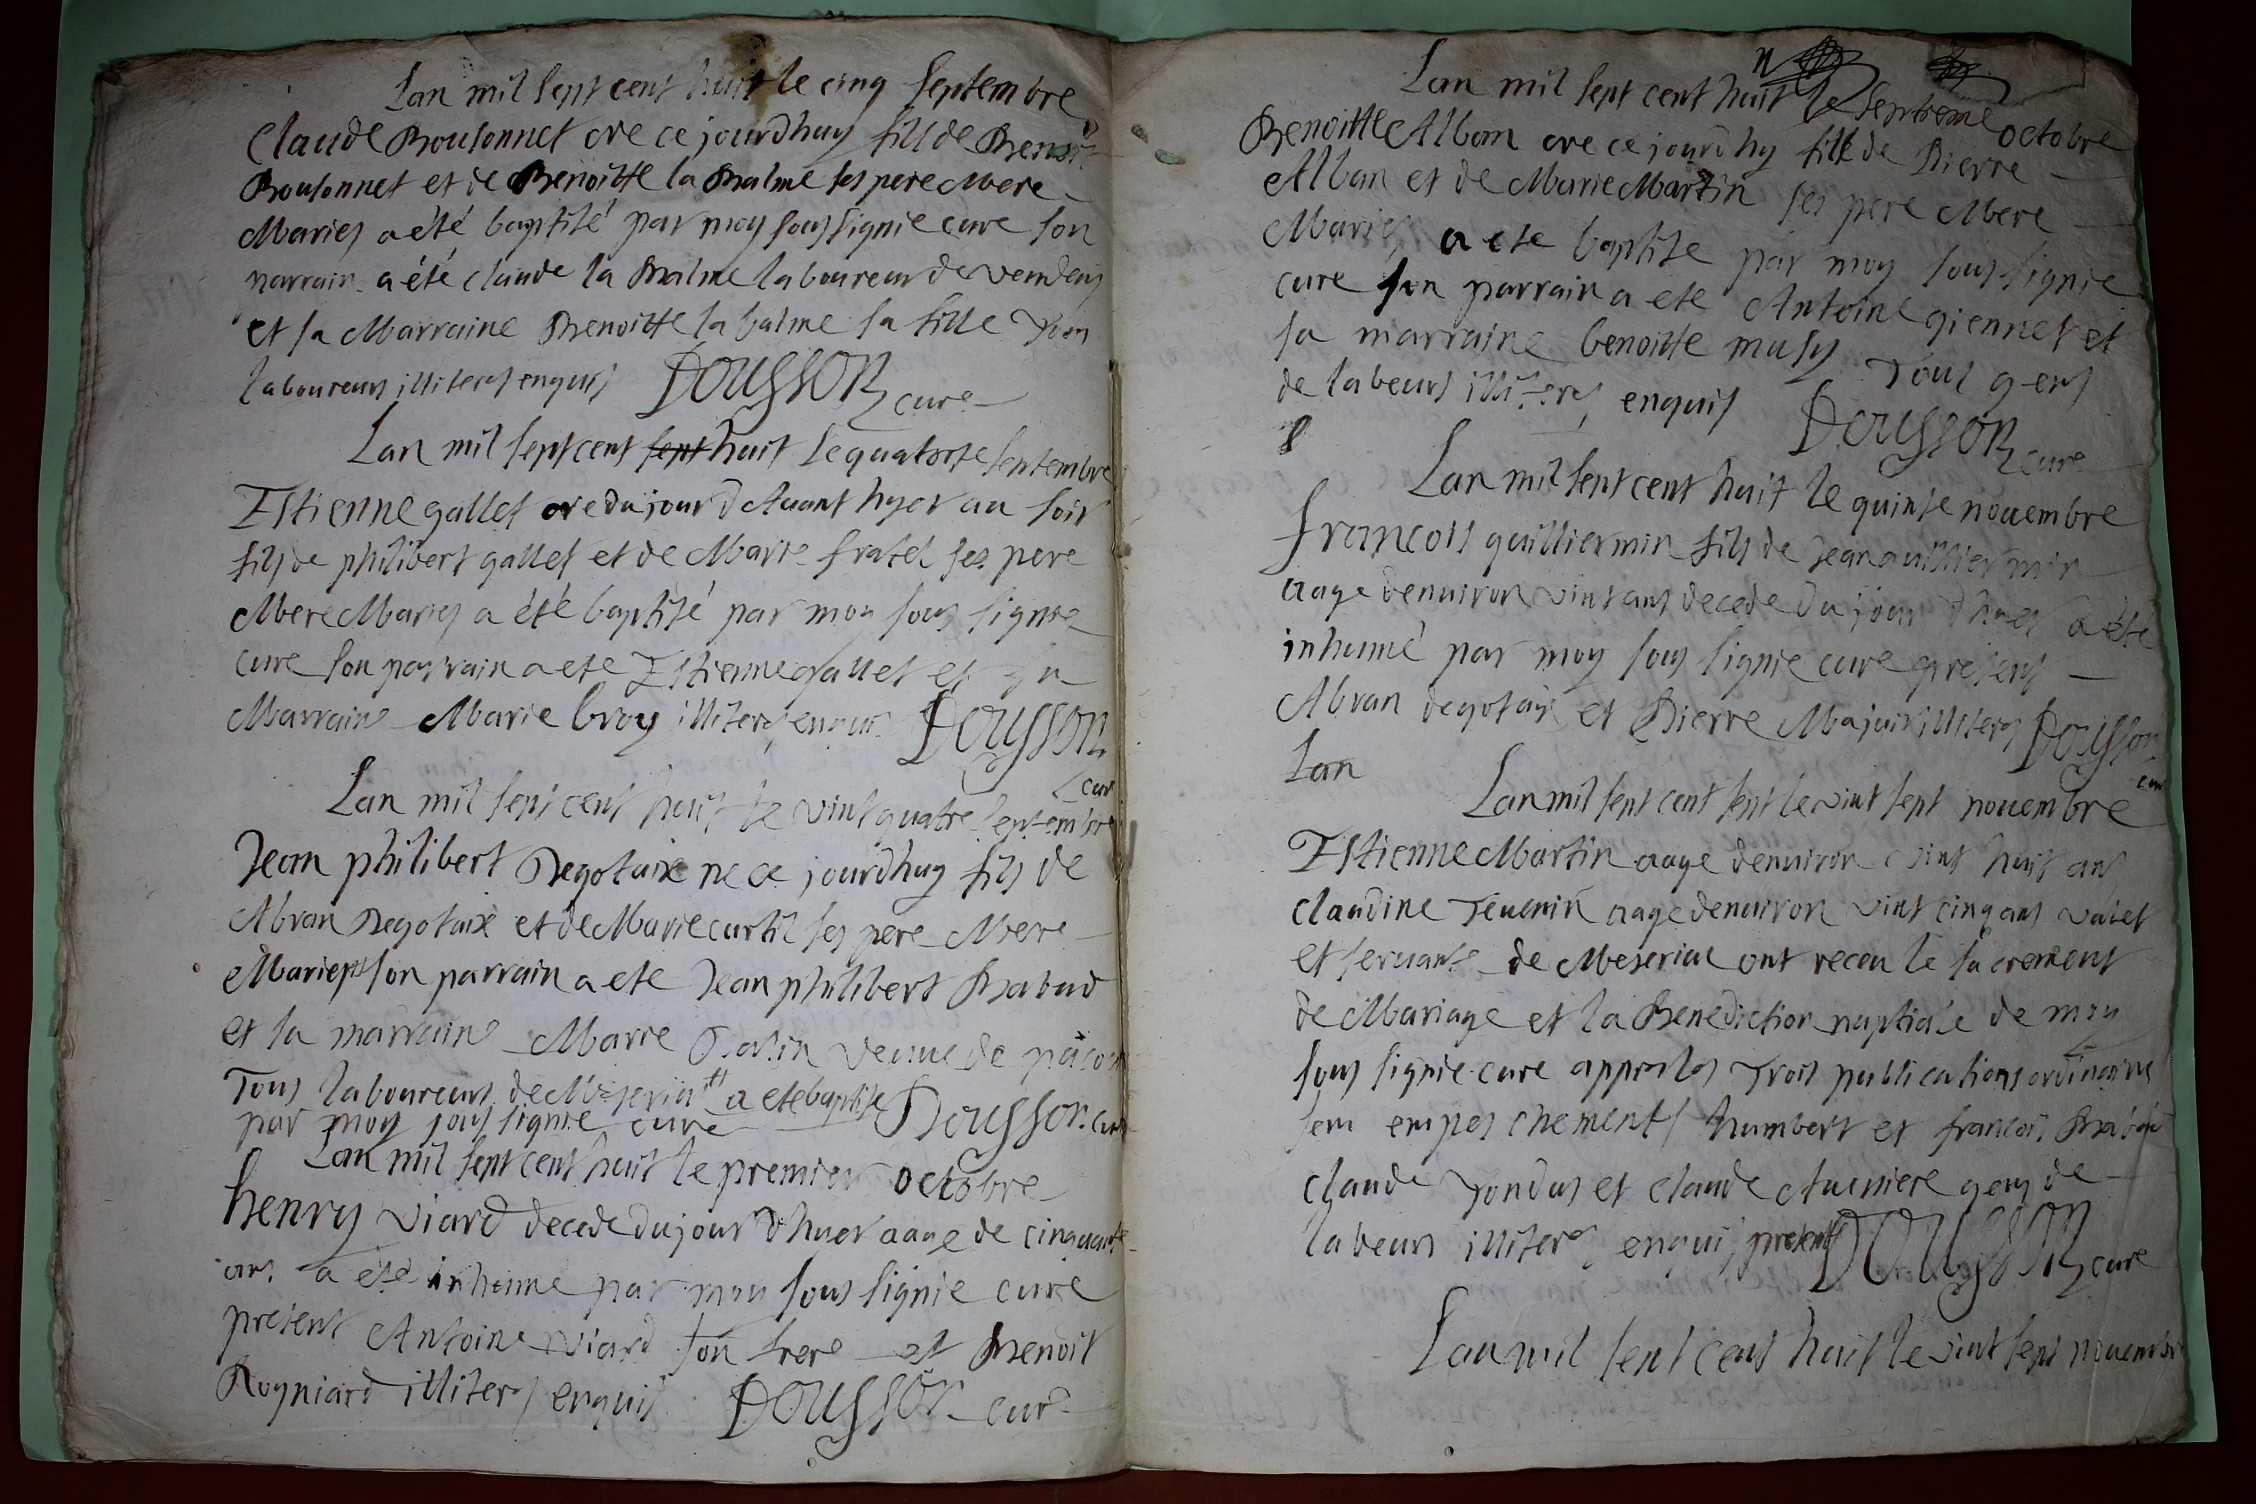 Lan mil sept cent huit le cinq septembre
Claude Rousonnet ne ce jourdhuy fils de Benoit
Rousonnet et de Benoitte la Balme ses pere Mere
Maries a été baptisé par moy soussignie cure son
parrain a été claude la Balme laboureur de
et sa Marraine Benoitte la balme sa fille tous
laboureurs illiteres enquis DOUSSON cure
Lan mil sept cent sept huit le quatorse septembre
Estienne gallet ne du jour davant hyer au soir
fils de philibert gallet et de Marie fratel ses pere
Mere Maries a été baptisé par moy sous signie
cure son parrain a ete Estienne gallet et sa
Marraine Marie broy illiteres enquis DOUSSON
cure
Lan mil sept cent huit le vint quatre septembre
Jean philibert Degotaix ne ce jourdhuy fils de
Abran Degotaix et de Marie curtil ses pere Mere
Maries son parrain a ete Jean philibert Rabud
et sa marraine Marie veuve de
Tous laboureurs de Meseria a ete baptise
par moy sous signie cure Dousson cure
Lan mil sept cent huit le premier octobre
henry viard decede du jour dhyer aage de cinquante
ans a été inhume par moy sous signie cure
present Antoine viard son frere et Benoit
Rogniard illiteres enquis DOUSSON cure
Lan mil sept cent huit le septieme octobre
Benoitte Alban ne ce jourdhuy fille de Pierre
Alban et de Marie Martin ses pere Mere
Maries a ete baptise par moy sous signie
cure son parrain a ete Antoine giennet et
sa marraine benoitte musy Tous gens
de labeurs illiteres enquis DOUSSON
cure
Lan mil sept cent huit le quinse novembre
françois guilliermin fils de Jean guilliermin
aage denviron vint ans decede du jour dhier a été
inhumé par moy sous signie cure presens
Abran degotaix et Pierre Majuir illiteres Dousson
cure
Lan
Lan mil sept cent sept le vint sept novembre
Estienne Martin aage denviron vint huit ans
claudine Tevenin aage denviron vint cinq ans valet
et servante de Meseriac ont receu le sacrement
de Mariage et la Benediction nuptiale de moy
sous signie cure appres les trois publications ordinaires
sens empeschements humbert et françois Rabud
claude Tondus et claude Auvniere gens de
labeurs illiteres enquis presents DOUSSON cure
Lan mil sept cent huit le vint sept novembre